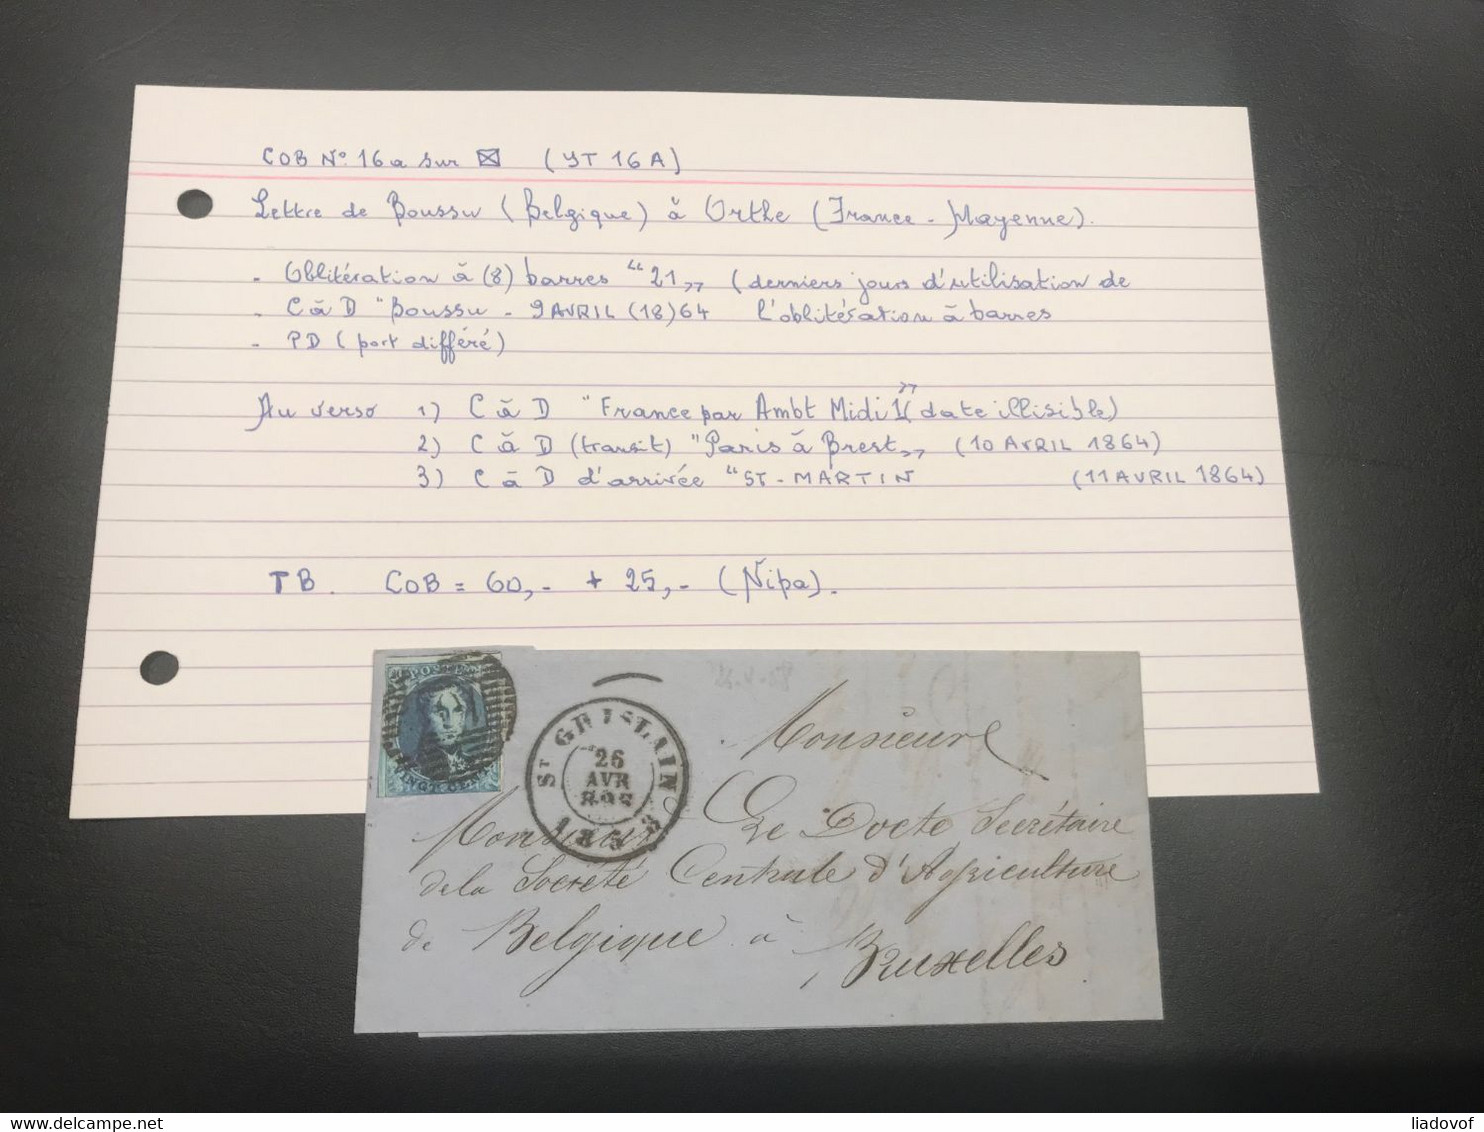 COB N° 16a sur (YT 16A)
Lettre de Boussu (Belgique) à Orthe (France - Mayenne).
- Oblitération à (8) barres "21" (derniers jours d'utilisation de
- C à D "Boussu - 9 AVRIL (18)64 l'oblitération à barres
- PD (port différé)
Au verso 1) C à D "France par Ambt Midi 1" (date illisible)
2) C à D (transit) "Paris à Brest" (10 AVRIL 1864)
3) C à D d'arrivée "ST-MARTIN (11 AVRIL 1864)
TB. COB = 60,- + 25,- (Nipa).
POSTES
VINGT CENTS
ST GHISLAIN
26
AVR
185
Monsieur
Monsieur Le Docte Secrétaire
de la Société Centrale d'Agriculture
de Belgique à
Bruxelles
delcampe.net
liadovof